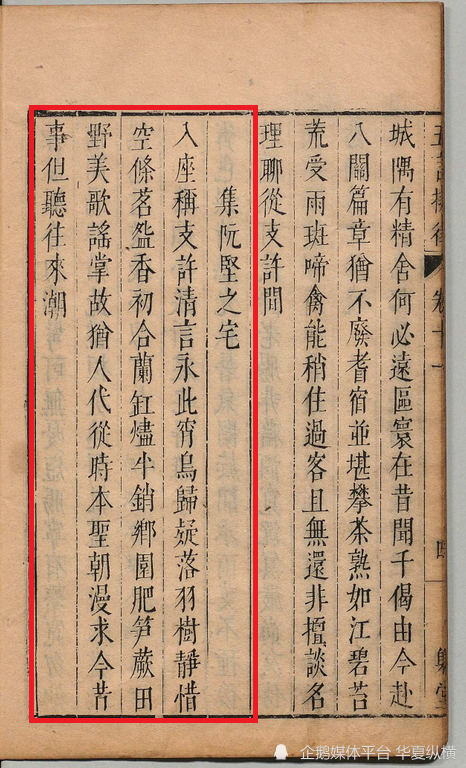 城隅有精舍何必遠區寰在昔聞千偈由今赴
八關篇章猶不廢耆宿並堪攀茶熟如江碧苔
荒受雨斑啼禽能稍住過客且無還非擅談名
理聊從支許間
集阮堅之宅
入座稱支許清言永此宵烏歸疑落羽樹靜惜
空條茗盌香初合蘭缸燼半銷鄉園肥笋蕨田
野美歌謠掌故猶人代從時本聖朝漫求今昔
事但聽往來潮
企鹅媒体平台 华夏纵横